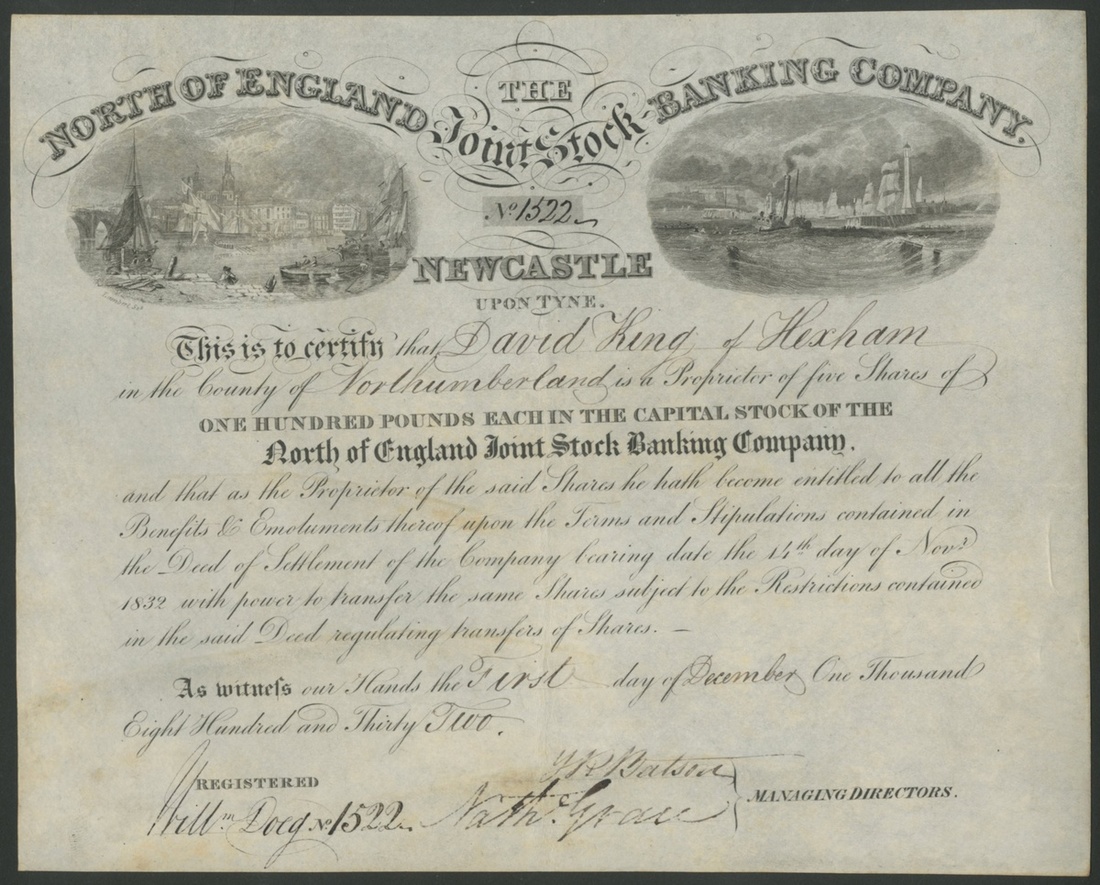 THE
NORTH OF ENGLAND Joint Stock BANKING COMPANY.
No. 1522
NEWCASTLE
UPON TYNE.
This is to certify that David King of Hexham
in the County of Northumberland is a Proprietor of five Shares of
ONE HUNDRED POUNDS EACH IN THE CAPITAL STOCK OF THE
North of England Joint Stock Banking Company.
and that as the Proprietor of the said Shares he hath become entitled to all the
Benefits & Emoluments thereof upon the Terms and Stipulations contained in
the Deed of Settlement of the Company bearing date the 14th day of Novr
1832 with power to transfer the same Shares subject to the Restrictions contained
in the said Deed regulating transfers of Shares. —
As witness our Hands the First day of December One Thousand
Eight Hundred and Thirty Two.
REGISTERED
Willm Doeg No. 1522
Batson
Nathl Grace
MANAGING DIRECTORS.